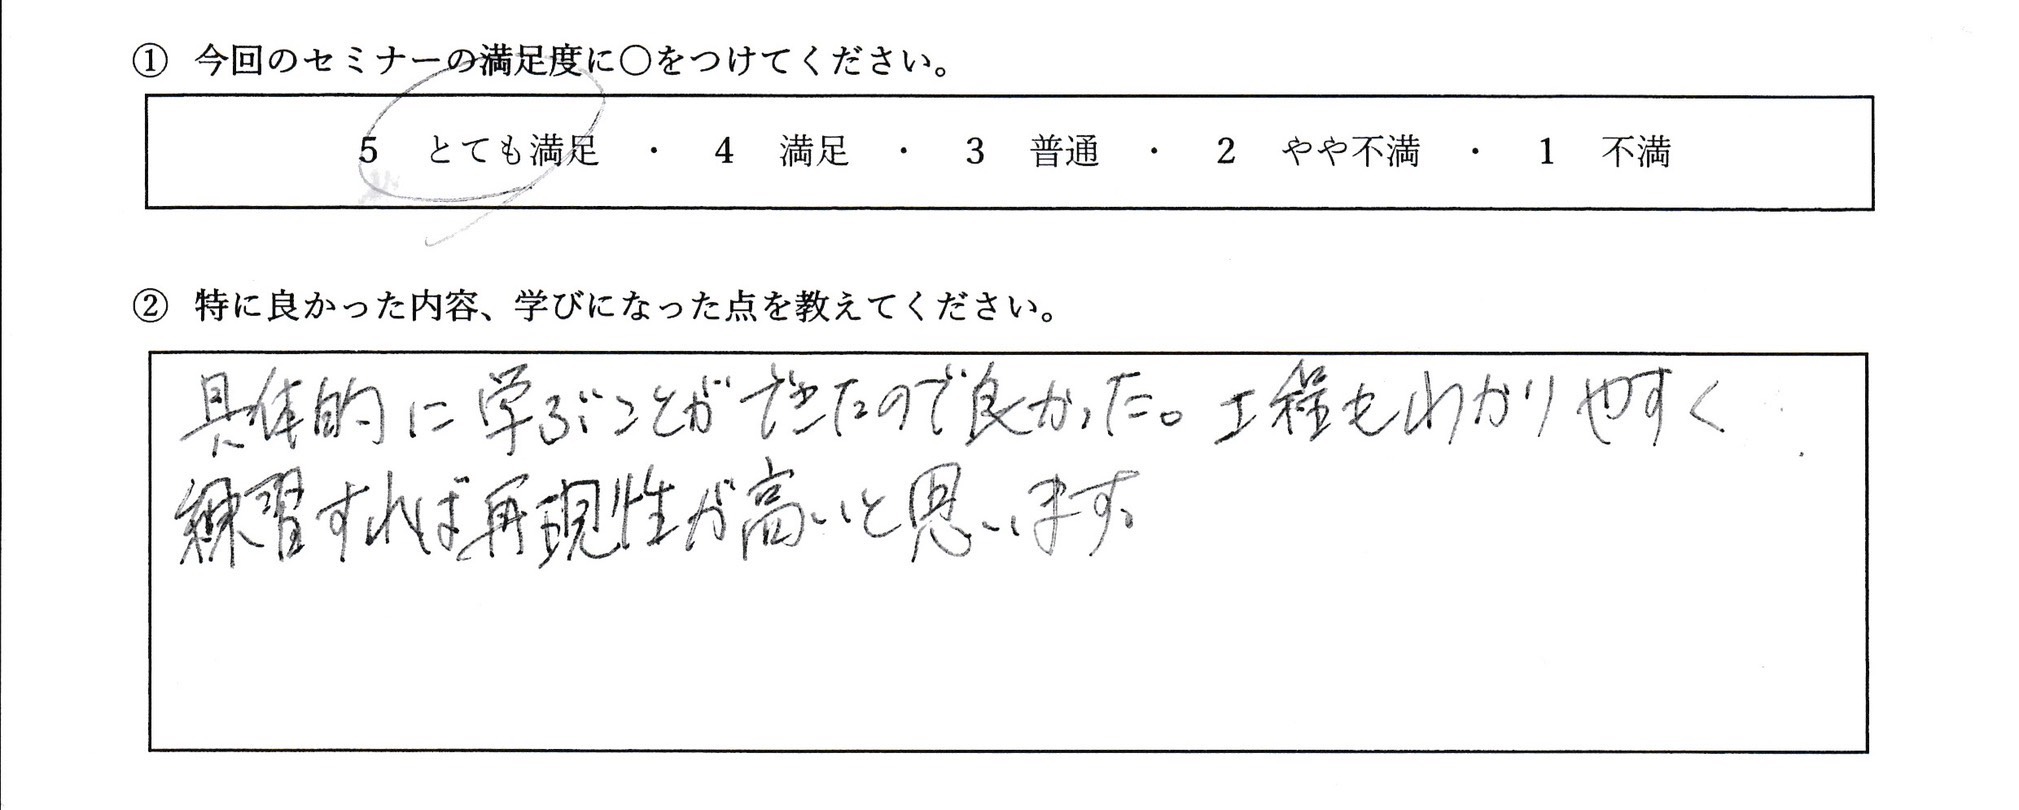 ① 今回のセミナーの満足度に○をつけてください。
5 とても満足 ・ 4 満足 ・ 3 普通 ・ 2 やや不満 ・ 1 不満
② 特に良かった内容、学びになった点を教えてください。
具体的に学ぶことができたので良かった。工程もわかりやすく
練習すれば再現性が高いと思います。